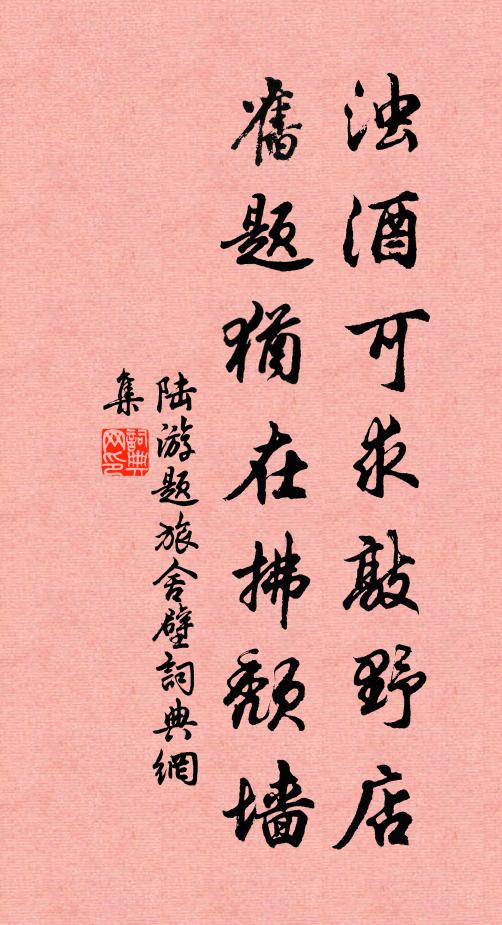 浊酒可求敲野店
舊题犹在拂颓墙
陆游题旅舍壁詞典網
集
詞典
网印